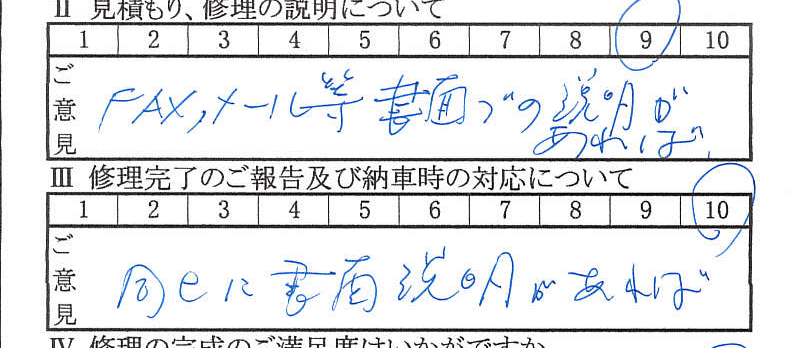 Ⅱ 見積もり、修理の説明について
1 2 3 4 5 6 7 8 9 10
ご意見
FAX,メール等 書面での説明が
あれば、
Ⅲ 修理完了のご報告及び納車時の対応について
1 2 3 4 5 6 7 8 9 10
ご意見
同じに書面説明があれば
Ⅳ 修理の完成のご満足度はいかがですか